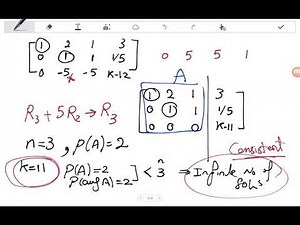 1 2 1 3
0 1 1 1/5 0 5 5 1
0 -5 -5 K-12
A
R3 + 5R2 → R3
1 2 1 3
0 1 1 1/5
0 0 0 K-11
n=3, ρ(A)=2
Consistent
K=11 ρ(A)=2 ρ(aug A)=2 ] < 3 n ⇒ Infinite No of Solns